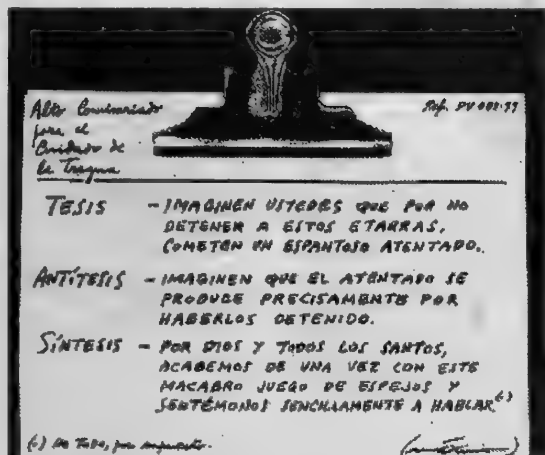 Alto Comisariado
para el
Cuidado de
la Tregua
Ref. PV 002.99
TESIS - IMAGINEN USTEDES QUE POR NO
DETENER A ESTOS ETARRAS,
COMETEN UN ESPANTOSO ATENTADO.
ANTÍTESIS - IMAGINEN QUE EL ATENTADO SE
PRODUCE PRECISAMENTE POR
HABERLOS DETENIDO.
SÍNTESIS - POR DIOS Y TODOS LOS SANTOS,
ACABEMOS DE UNA VEZ CON ESTE
MACABRO JUEGO DE ESPEJOS Y
SENTÉMONOS SENCILLAMENTE A HABLAR.(·)
(·) De Todo, por supuesto.